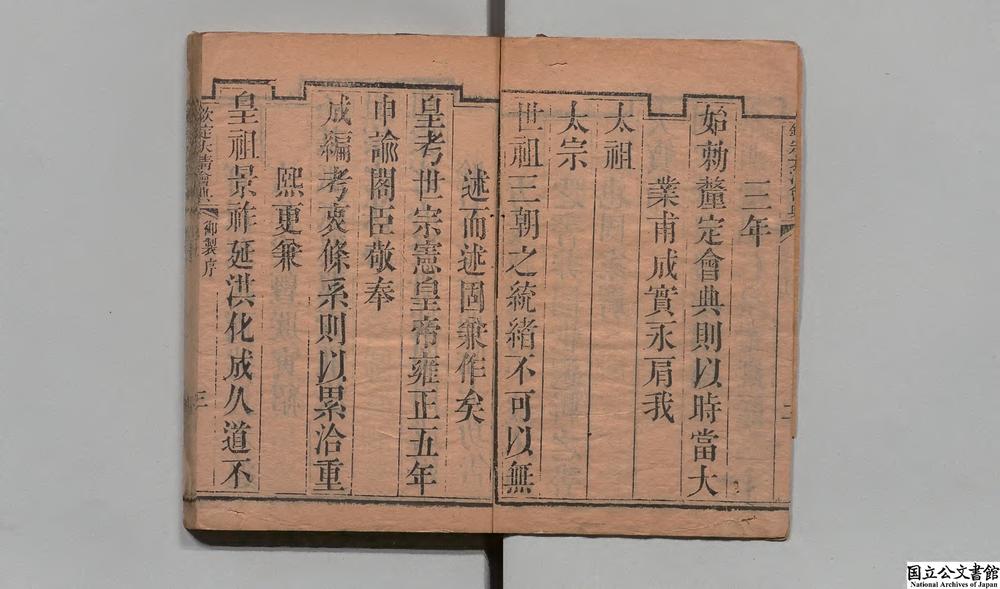 三年
始勅釐定會典則以時當大
業甫成實永肩我
太祖
太宗
世祖三朝之統緒不可以無
述而述固兼作矣
皇考世宗憲皇帝雍正五年
申諭閣臣敬奉
成編考衷條系則以累洽重
熙更兼
皇祖景祚延洪化成久道不
欽定大清會典
御製序
三
国立公文書館
National Archives of Japan